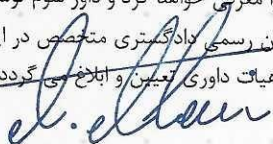 معرفی خواهد کرد و داور سوم توس
ن رسمی دادگستری متخصص در ا
هیات داوری تعیین و ابلاغ می گردد